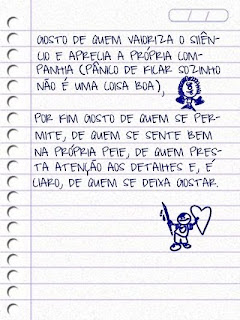 GOSTO DE QUEM VALORIZA O SILÊN-
CIO E APRECIA A PRÓPRIA COM-
PANHIA (PÂNICO DE FICAR SOZINHO
NÃO É UMA COISA BOA),
POR FIM GOSTO DE QUEM SE PER-
MITE, DE QUEM SE SENTE BEM
NA PRÓPRIA PELE, DE QUEM PRES-
TA ATENÇÃO AOS DETALHES E, É
CLARO, DE QUEM SE DEIXA GOSTAR.